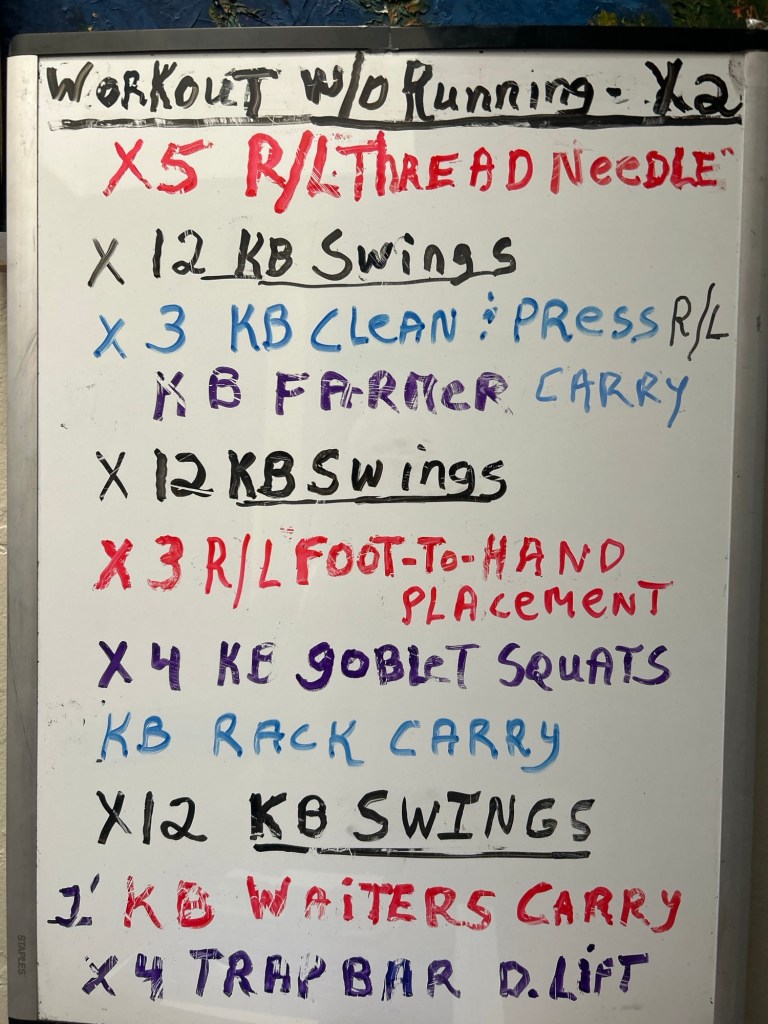 WORKOUT W/O Running - X2
X5 R/L "THREAD NeeDLE"
X 12 KB Swings
X 3 KB CLeAN & PRess R/L
KB FARMeR CARRY
X 12 KB Swings
X 3 R/L FOOT-To-HAND
PLACeMENT
X 4 KB goBLeT SQUATS
KB RACK CARRY
X12 KB SWINGS
1' KB WAiTERS CARRY
X4 TRAP BAR D.LiFT
STAPLES